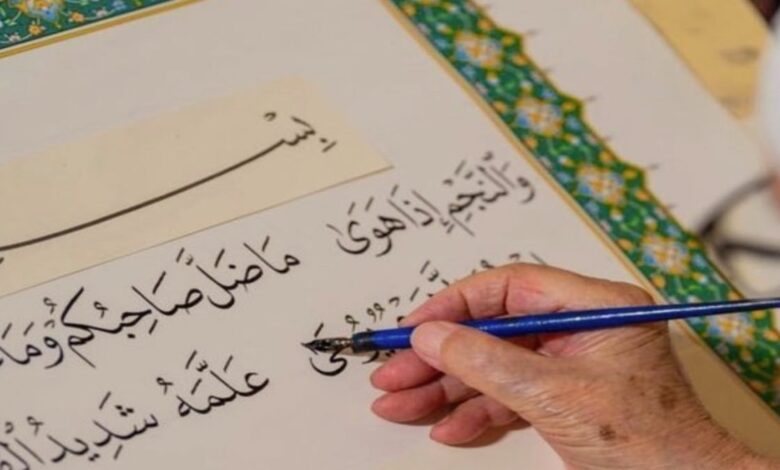 بِسْـ
وَالنَّجْمِ إِذَا هَوَىٰ مَا ضَلَّ صَاحِبُكُمْ وَمَا
يُوحَىٰ عَلَّمَهُ شَدِيدُ